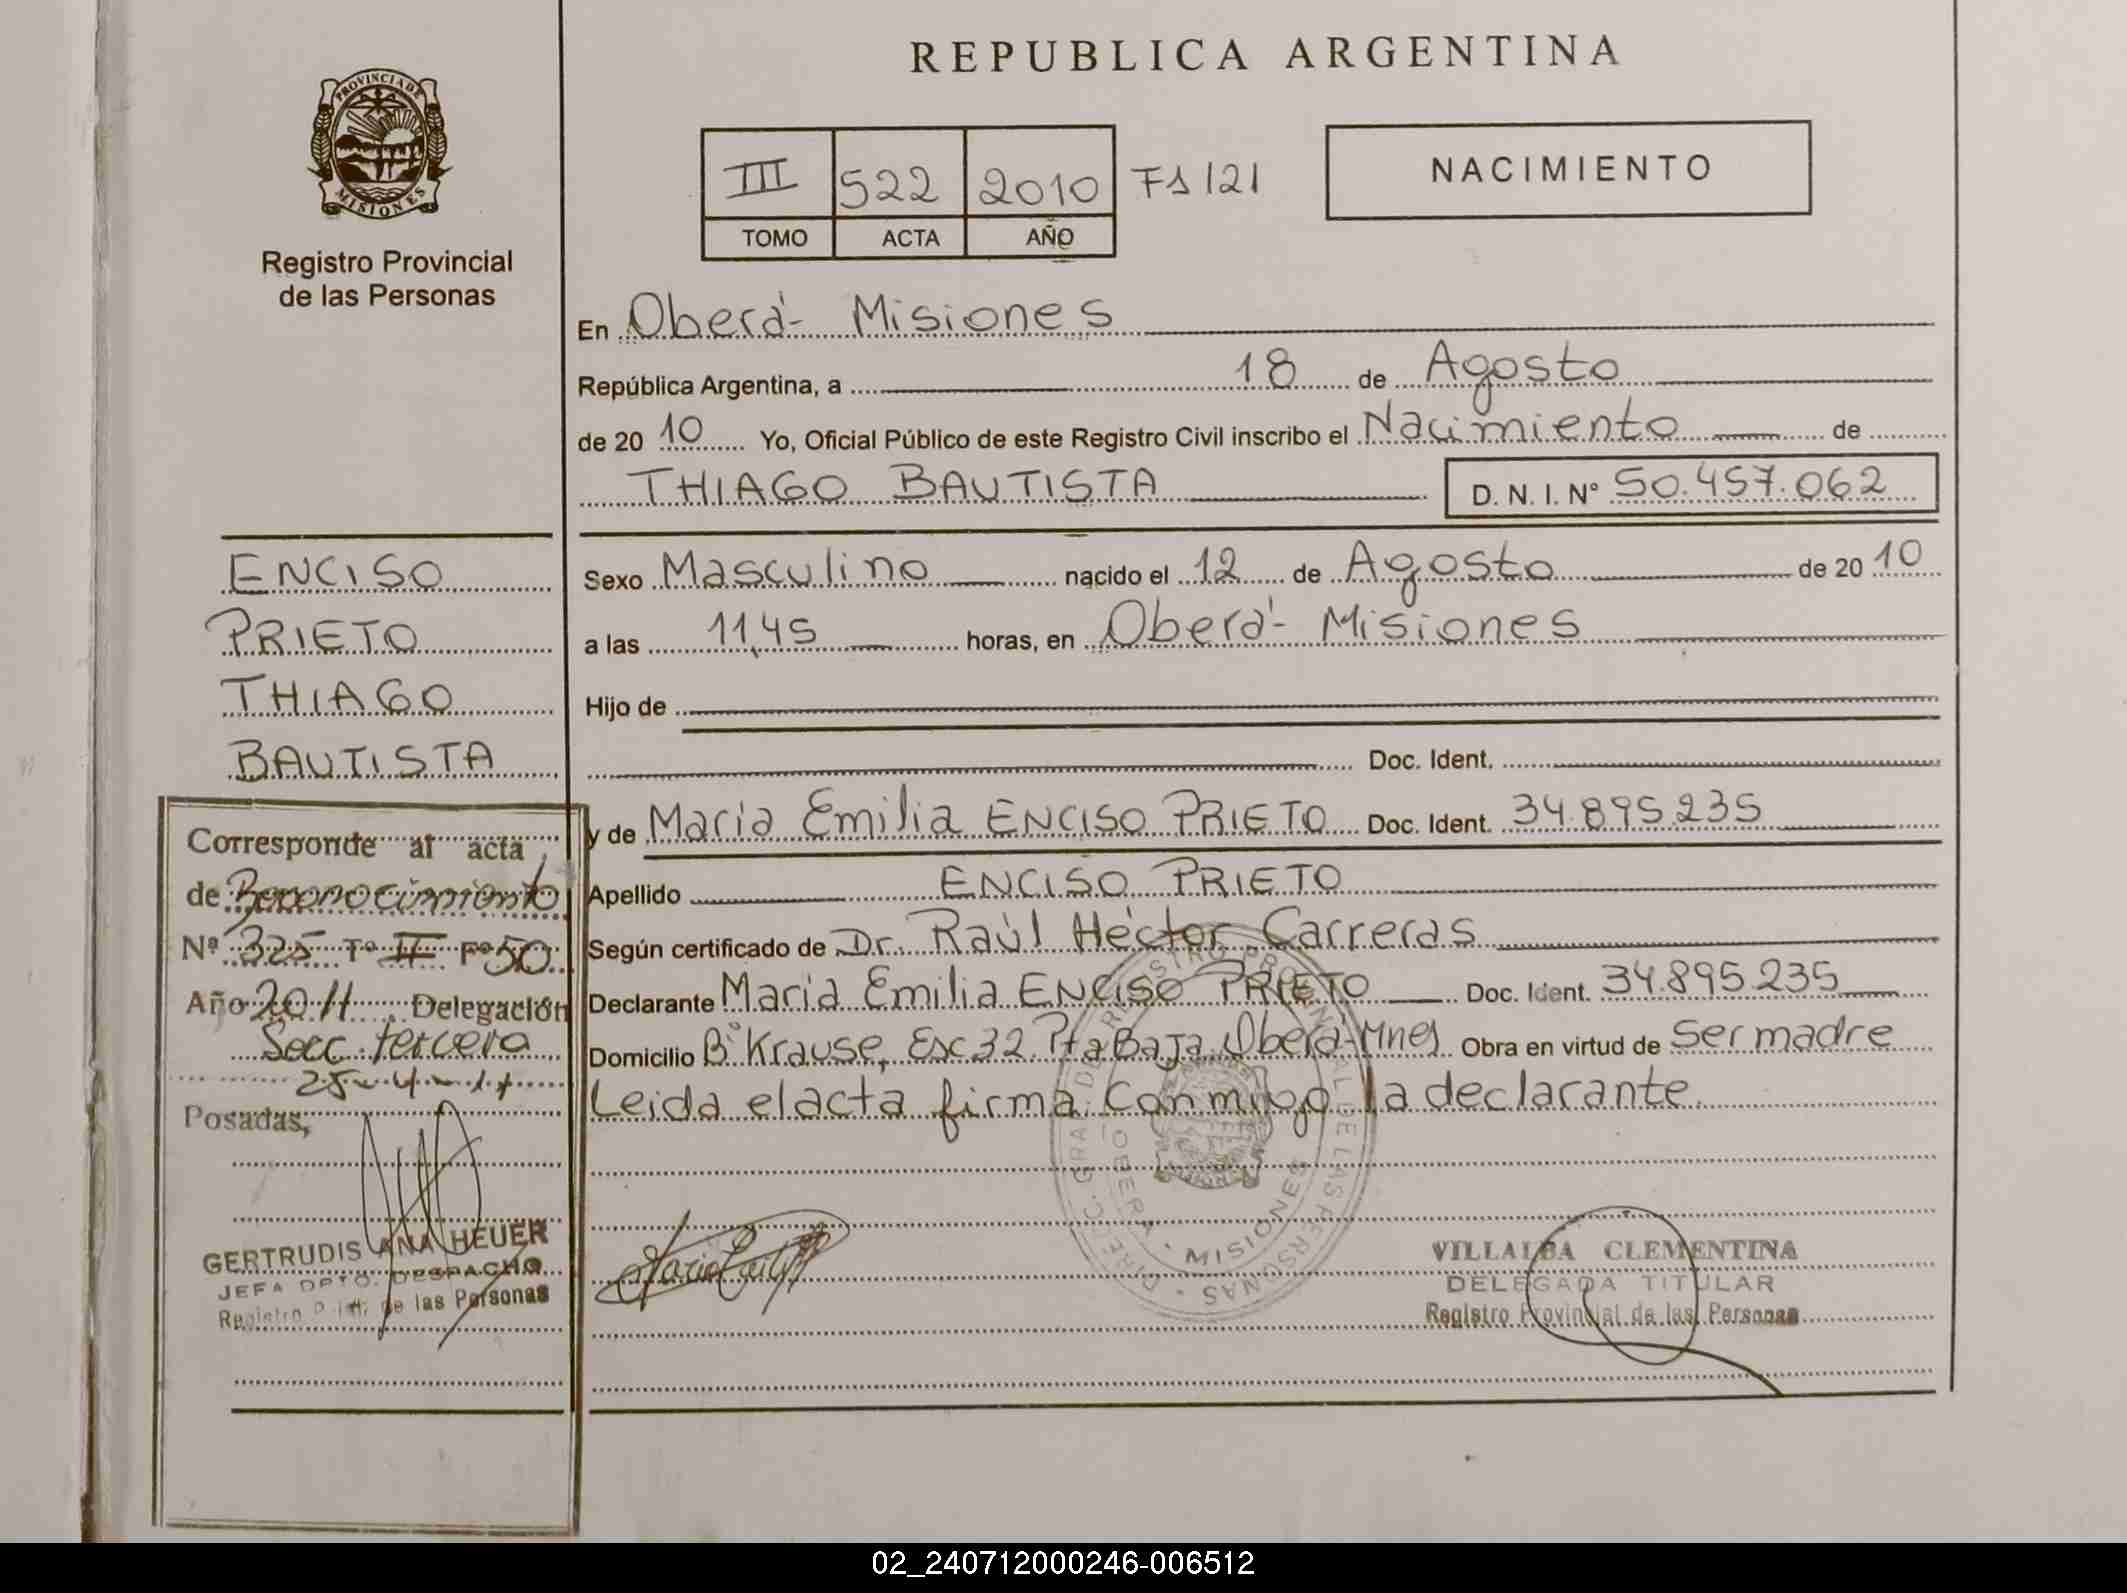 REPUBLICA ARGENTINA
PROVINCIA DE MISIONES
Registro Provincial
de las Personas
III 522 2010 Fº 121
TOMO ACTA AÑO
NACIMIENTO
En Oberá - Misiones
República Argentina, a 18 de Agosto
de 20 10 Yo, Oficial Público de este Registro Civil inscribo el Nacimiento de
THIAGO BAUTISTA D. N. I. Nº 50.457.062
ENCISO
PRIETO
THIAGO
BAUTISTA
Sexo Masculino nacido el 12 de Agosto de 20 10
a las 11,45 horas, en Oberá - Misiones
Hijo de
Doc. Ident.
y de Maria Emilia ENCISO PRIETO Doc. Ident. 34.895.235
Apellido ENCISO PRIETO
Según certificado de Dr. Raúl Héctor Carreras
Declarante Maria Emilia ENCISO PRIETO Doc. Ident. 34.895.235
Domicilio Bº Krause, Esc 32 Pta Baja Oberá-Mnes Obra en virtud de Ser madre
Leida el acta firma Conmigo la declarante
Corresponde al acta
de Reconocimiento
Nº 325 Tº II Fº 50
Año 2011 Delegación
Secc. tercera
25-4-11
Posadas,
GERTRUDIS ANA HEUER
JEFA DPTO. DESPACHO
Registro de las Personas
DIREC. GRAL. DE REGISTRO PROVINCIAL DE LAS PERSONAS
OBERA MISIONES
VILLALBA CLEMENTINA
DELEGADA TITULAR
Registro Provincial de las Personas
02_240712000246-006512